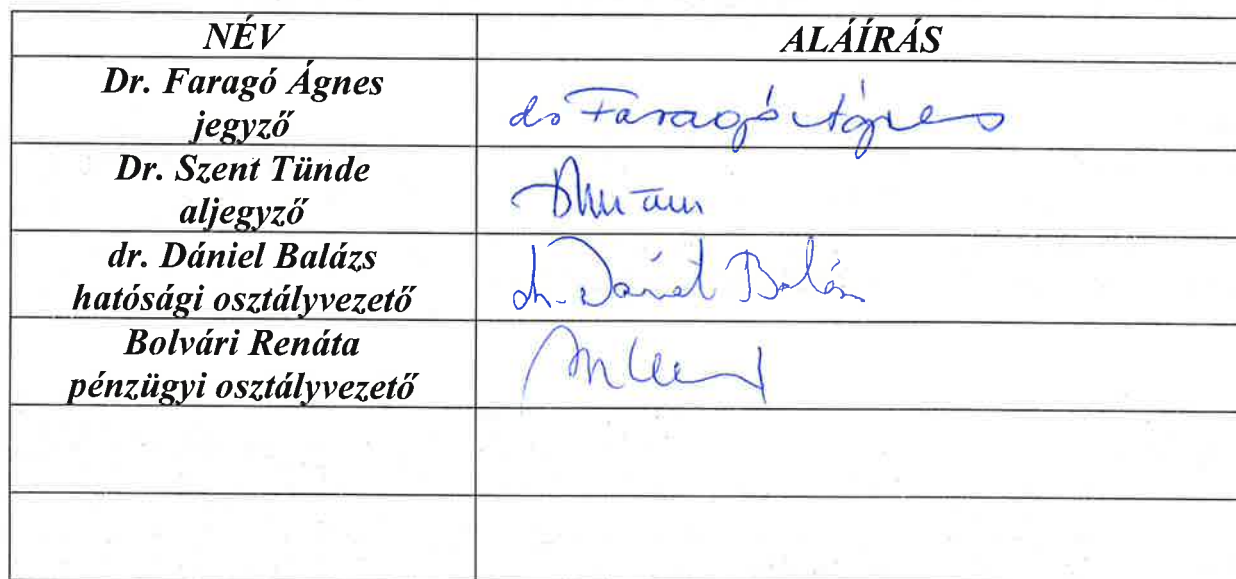 NÉV
ALÁÍRÁS
Dr. Faragó Ágnes
jegyző
dr Faragó Ágnes
Dr. Szent Tünde
aljegyző
dr. Dániel Balázs
hatósági osztályvezető
dr. Dániel Balázs
Bolvári Renáta
pénzügyi osztályvezető